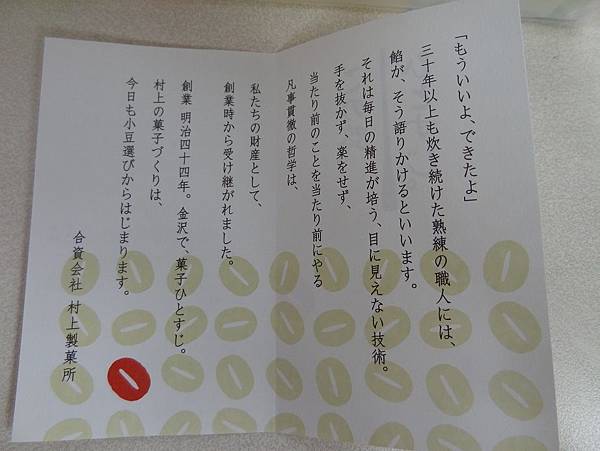 「もういいよ、できたよ」
三十年以上も炊き続けた熟練の職人には、
餡が、そう語りかけるといいます。
それは毎日の精進が培う、目に見えない技術。
手を抜かず、楽をせず、
当たり前のことを当たり前にやる
凡事貫徹の哲学は、
私たちの財産として、
創業時から受け継がれました。
創業 明治四十四年。金沢で、菓子ひとすじ。
村上の菓子づくりは、
今日も小豆選びからはじまります。
合資会社 村上製菓所